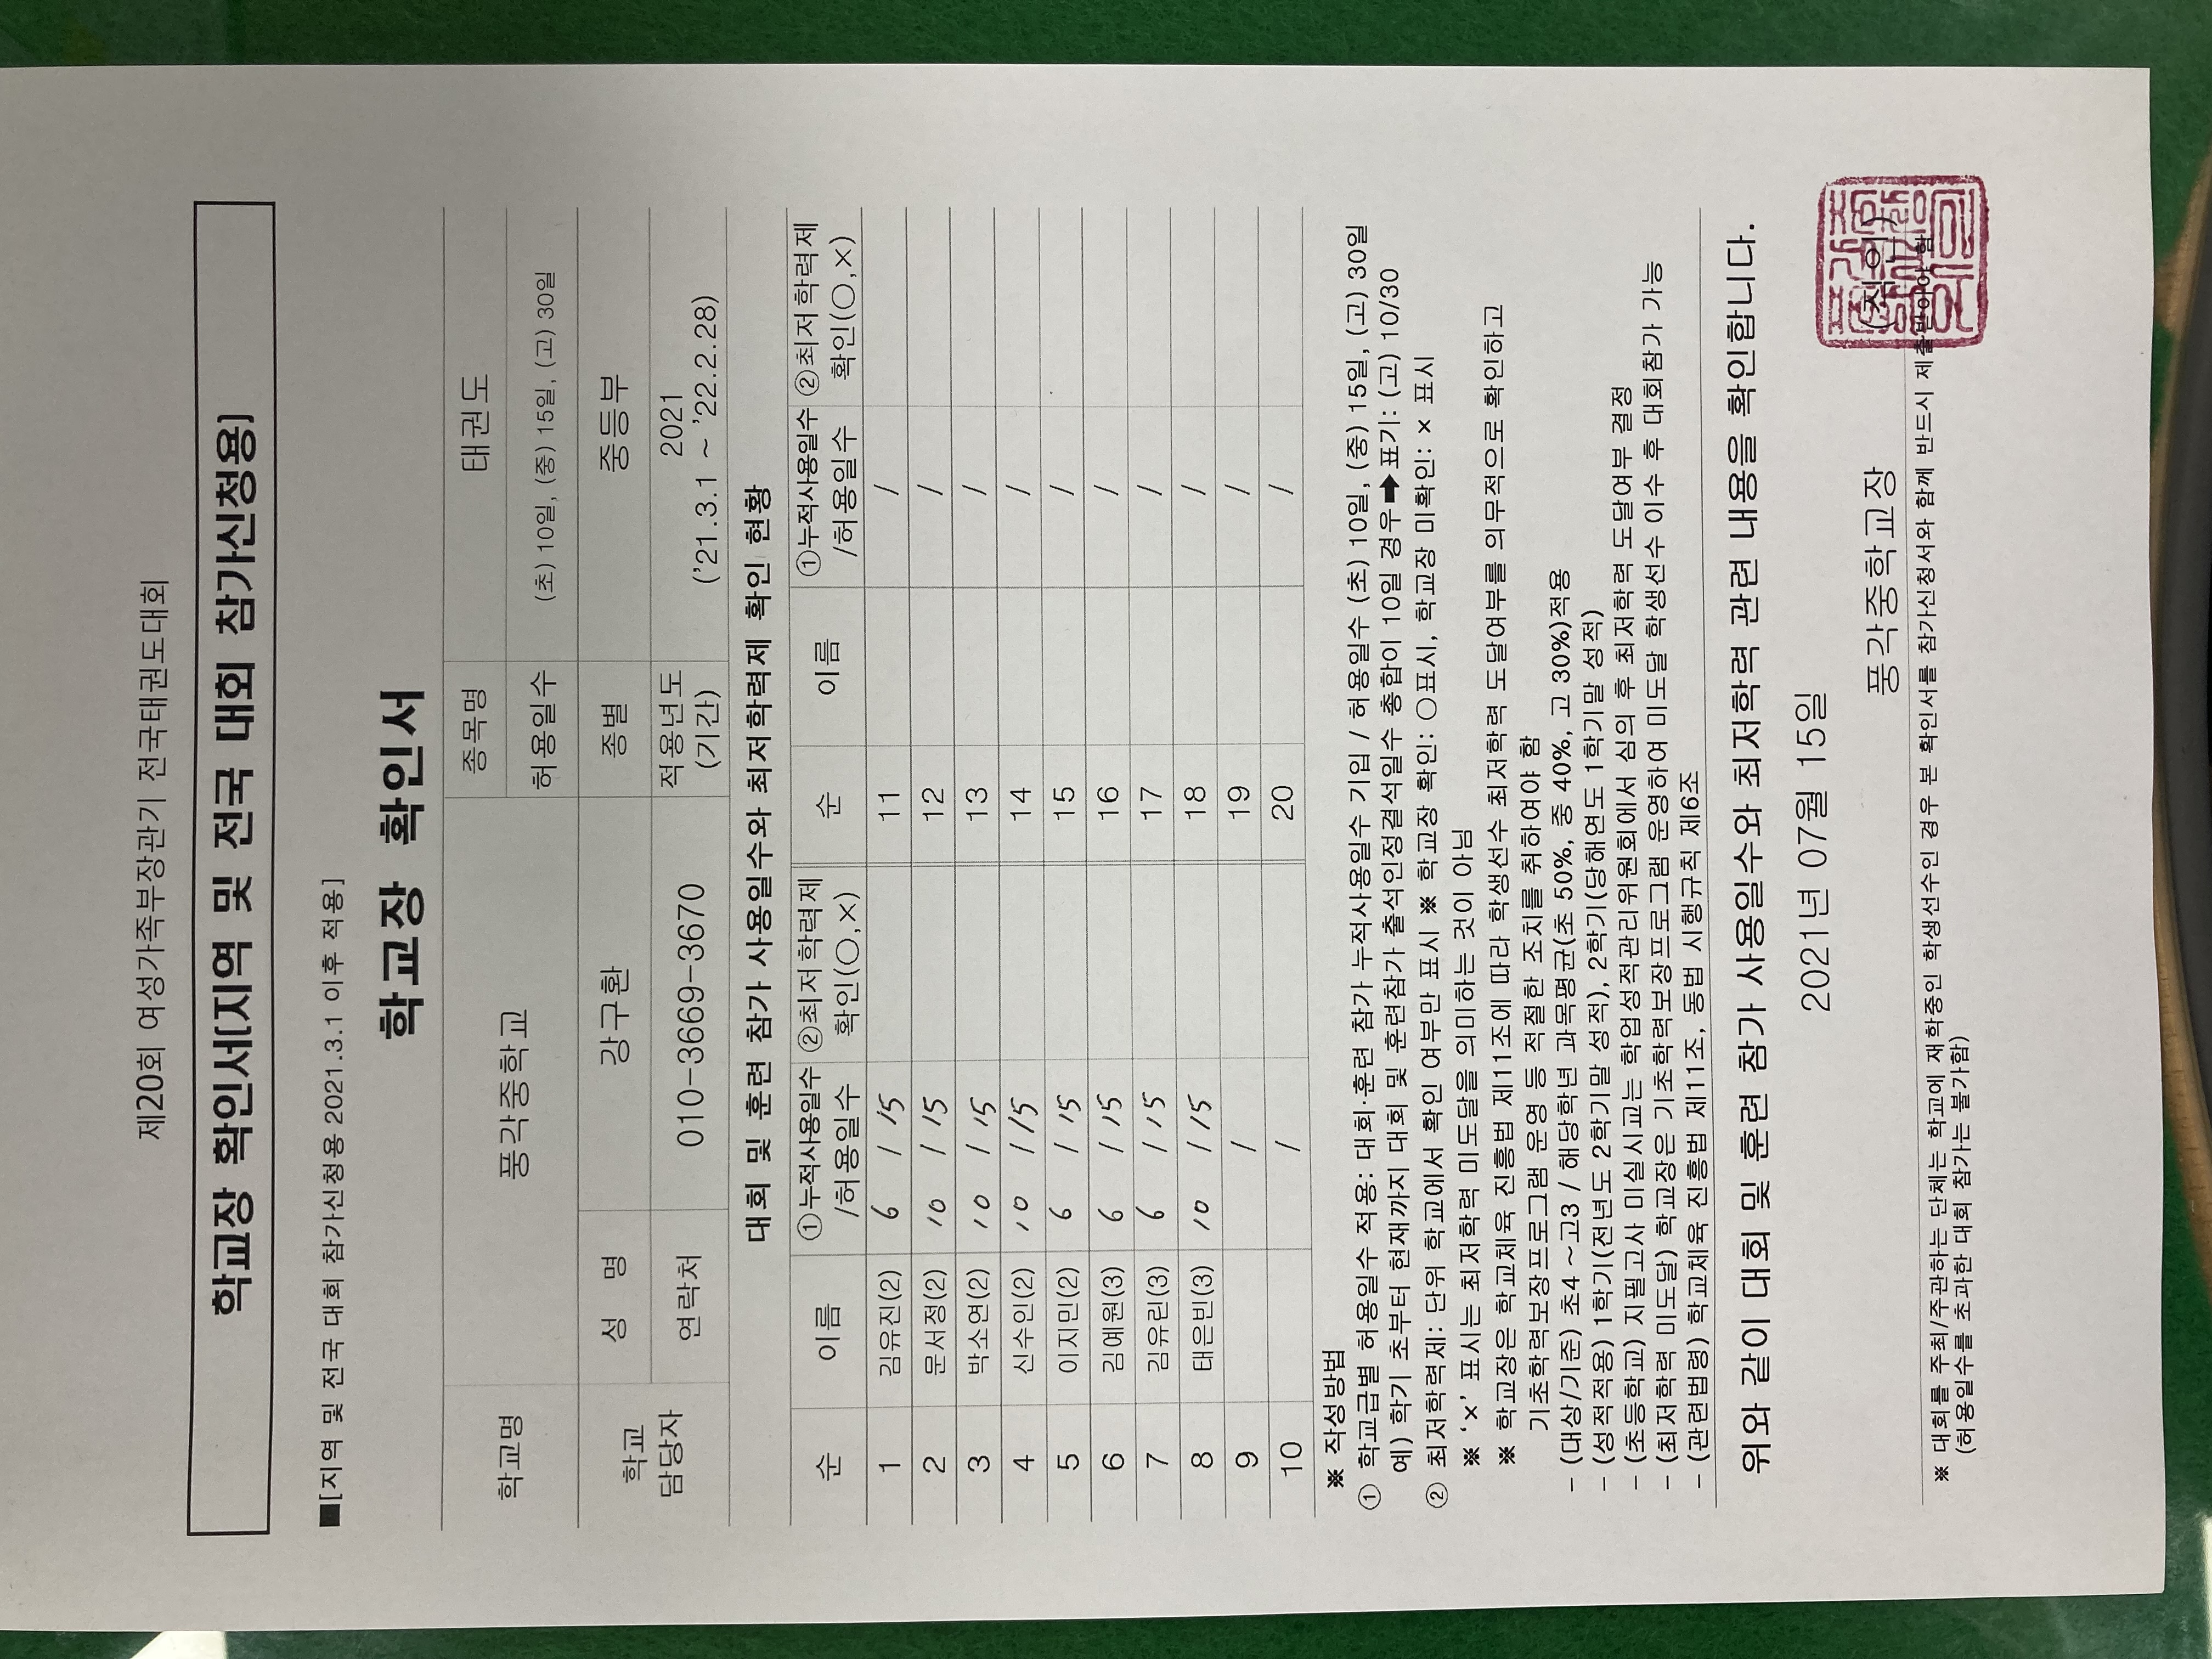 제20회 여성가족부장관기 전국태권도대회
학교장 확인서[지역 및 전국 대회 참가신청용]
■[지역 및 전국 대회 참가신청용 2021.3.1 이후 적용]
학교장 확인서
학교명 풍각중학교 종목명 태권도
허용일수 (초) 10일, (중) 15일, (고) 30일
학교 담당자 성 명 강구환 종별 중등부
연락처 010-3669-3670 적용년도 (기간) 2021 ('21.3.1 ~ '22.2.28)
대회 및 훈련 참가 사용일수와 최저학력제 확인 현황
순 이름 ①누적사용일수 /허용일수 ②최저학력제 확인(○,×) 순 이름 ①누적사용일수 /허용일수 ②최저학력제 확인(○,×)
1 김유진(2) 6 / 15 11 /
2 문서정(2) 10 / 15 12 /
3 박소연(2) 10 / 15 13 /
4 신수인(2) 10 / 15 14 /
5 이지민(2) 6 / 15 15 /
6 김예원(3) 6 / 15 16 /
7 김유린(3) 6 / 15 17 /
8 태은빈(3) 10 / 15 18 /
9 / 19 /
10 / 20 /
※ 작성방법
① 학교급별 허용일수 적용: 대회·훈련 참가 누적사용일수 기입 / 허용일수 (초) 10일, (중) 15일, (고) 30일
예) 학기 초부터 현재까지 대회 및 훈련참가 출석인정결석일수 총합이 10일 경우➡표기: (고) 10/30
② 최저학력제: 단위 학교에서 확인 여부만 표시 ※ 학교장 확인: ○표시, 학교장 미확인: × 표시
※ '×' 표시는 최저학력 미도달을 의미하는 것이 아님
※ 학교장은 학교체육 진흥법 제11조에 따라 학생선수 최저학력 도달여부를 의무적으로 확인하고
기초학력보장프로그램 운영 등 적절한 조치를 취하여야 함
- (대상/기준) 초4 ~고3 / 해당학년 과목평균(초 50%, 중 40%, 고 30%)적용
- (성적적용) 1학기(전년도 2학기말 성적), 2학기(당해연도 1학기말 성적)
- (초등학교) 지필고사 미실시교는 학업성적관리위원회에서 심의 후 최저학력 도달여부 결정
- (최저학력 미도달) 학교장은 기초학력보장프로그램 운영하여 미도달 학생선수 이수 후 대회참가 가능
- (관련법령) 학교체육 진흥법 제11조, 동법 시행규칙 제6조
위와 같이 대회 및 훈련 참가 사용일수와 최저학력 관련 내용을 확인합니다.
2021년 07월 15일
풍각중학교장 (직인)
※ 대회를 주최/주관하는 단체는 학교에 재학중인 학생선수인 경우 본 확인서를 참가신청서와 함께 반드시 제출받아야 함
(허용일수를 초과한 대회 참가는 불가함)